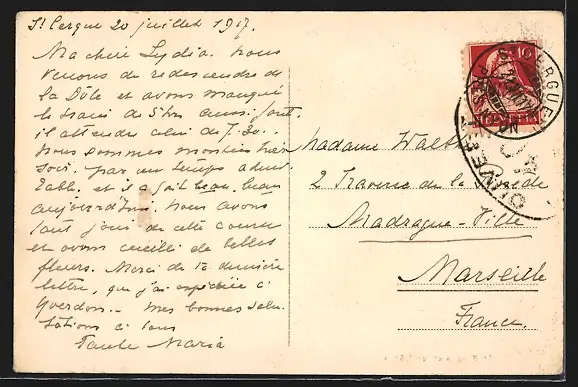 St Cergue 20 juillet 1917.
Ma chère Lydia. Nous
venons de redescendre de
la Dôle et avons manqué
le train de 5 hrs aussi faut
il attendre celui de 7.30.
Nous sommes montées hier
soir par un temps admi
rable et il a fait beau, beau
aujourd'hui. Nous avons
tout joui de cette course
et avons cueilli de belles
fleurs. Merci de ta dernière
lettre, que j'ai expédiée à
Yverdon. Mes bonnes salu-
tations à tous
Tante Maria
Madame Walther
2 Traverse de la
Madrague-Ville
Marseille
France.
10
HELVETIA
ST CERGUE